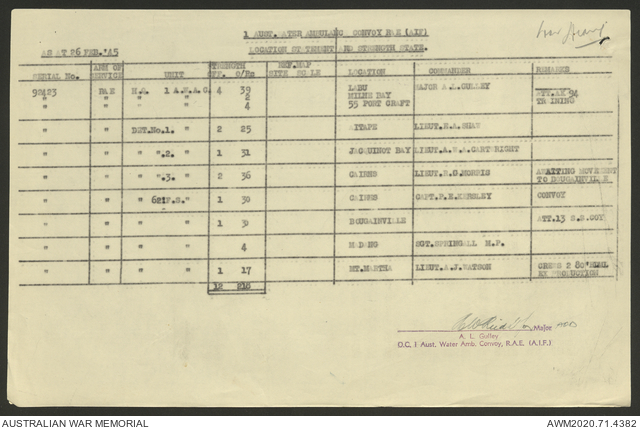 1 AUST. WATER AMBULANC CONVOY RAE (AIF)
AS AT 26 FEB. '45
LOCATION STATEMENT AND STRENGTH STATE.
SERIAL No. ARM OF SERVICE UNIT STRENGTH OFF. O/Rs REF. MAP SITE SCALE LOCATION COMMANDER REMARKS
92423 RAE H.Q. 1 A.W.A.C. 4 39 LABU MAJOR A.L. GULLEY ATT. 94
" " " 2 MILNE BAY TRAINING
" " " 4 55 PORT CRAFT
" " DET. No. 1. " 2 25 AITAPE LIEUT.
" " " .2. " 1 31 JACQUINOT BAY LIEUT. CARTWRIGHT
" " " .3. " 2 36 CAIRNS LIEUT. MORRIS AWAITING MOVEMENT TO BOUGAINVILLE
" " " " 1 30 CAIRNS CAPT. CONVOY
" " " " 1 30 BOUGAINVILLE ATT. 13 S.B. COY
" " " " 4 MADANG SGT. SPRINGALL M.P.
" " " " 1 17 MT. MARTHA LIEUT. A.J. WATSON CREWS 2 80' EX PRODUCTION
12 218
Major
A. L. Gulley
O.C. 1 Aust. Water Amb. Convoy, R.A.E. (A.I.F.)
AUSTRALIAN WAR MEMORIAL AWM2020.71.4382